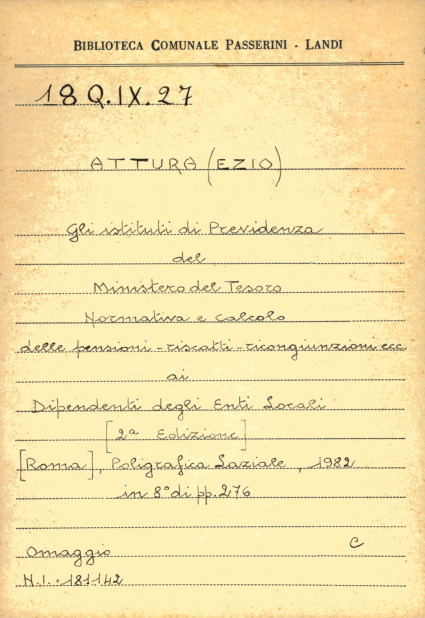 BIBLIOTECA COMUNALE PASSERINI - LANDI
18 Q.IX.27
ATTURA (EZIO)
Gli istituti di Previdenza
del
Ministero del Tesoro
Normativa e calcolo
delle pensioni - riscatti - ricongiunzioni ecc.
ai
Dipendenti degli Enti Locali
[2ª Edizione]
[Roma], Poligrafica Laziale, 1982
in 8° di pp. 276
Omaggio C
N.I. 181142